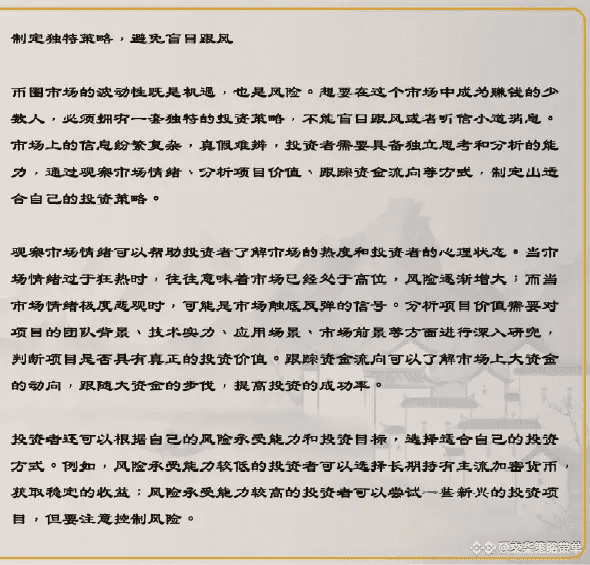 制定独特策略，避免盲目跟风
币圈市场的波动性既是机遇，也是风险。想要在这个市场中成为赚钱的少
数人，必须拥有一套独特的投资策略，不能盲目跟风或者听信小道消息。
市场上的信息纷繁复杂，真假难辨，投资者需要具备独立思考和分析的能
力，通过观察市场情绪、分析项目价值、跟踪资金流向等方式，制定出适
合自己的投资策略。
观察市场情绪可以帮助投资者了解市场的热度和投资者的心理状态。当市
场情绪过于狂热时，往往意味着市场已经处于高位，风险逐渐增大；而当
市场情绪极度悲观时，可能是市场触底反弹的信号。分析项目价值需要对
项目的团队背景、技术实力、应用场景、市场前景等方面进行深入研究，
判断项目是否具有真正的投资价值。跟踪资金流向可以了解市场上大资金
的动向，跟随大资金的步伐，提高投资的成功率。
投资者还可以根据自己的风险承受能力和投资目标，选择适合自己的投资
方式。例如，风险承受能力较低的投资者可以选择长期持有主流加密货币，
获取稳定的收益；风险承受能力较高的投资者可以尝试一些新兴的投资项
目，但要注意控制风险。